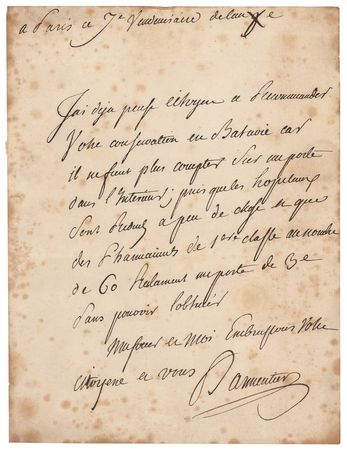 a Paris ce 7e Vendemiaire de l'an Xe
J'ai deja pensé Citoyen a Recommander
Votre conservation en Batavie car
il ne faut plus compter sur un poste
dans l'Interieur; puisque les hopitaux
sont Reduits a peu de chose et que
des Pharmaciens de 1ere classe au nombre
de 60 Reclament un poste de 3e
sans pouvoir l'obtenir
Ma soeur et Moi Embrassons Votre
citoyene et vous Parmentier